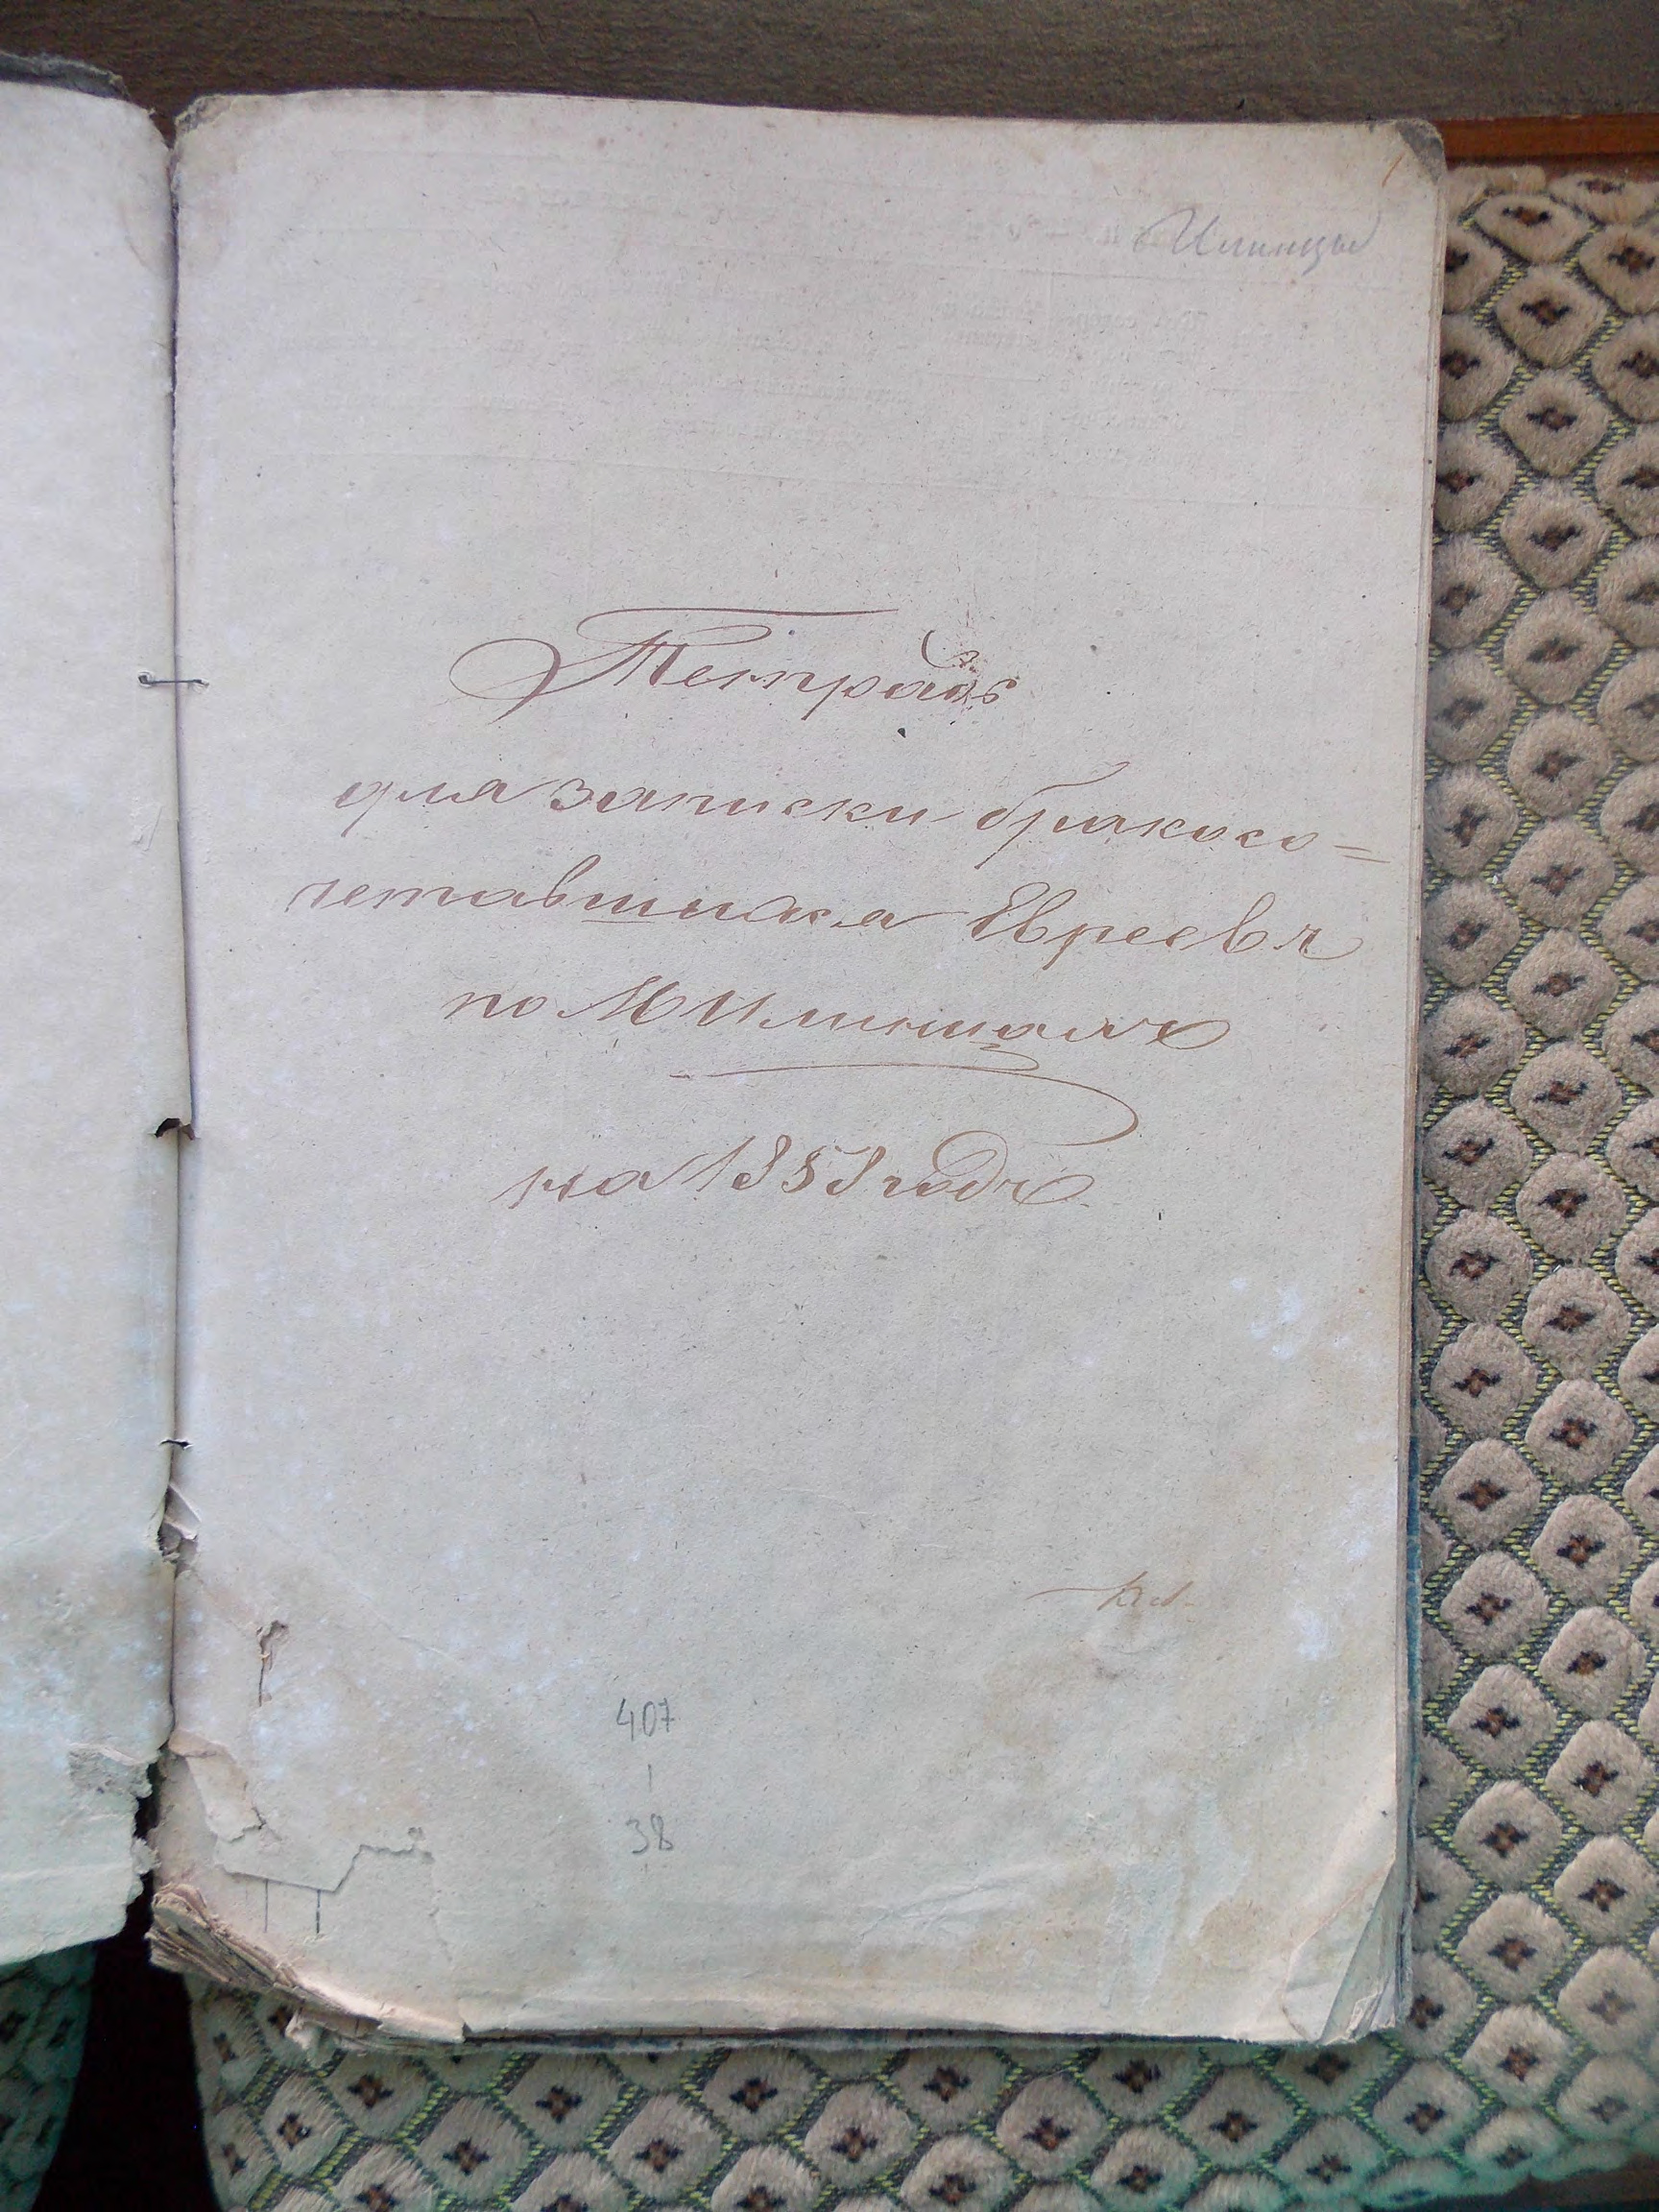 1
Илинцы
Тетрадь
для записки бракосо=
четавшихся Евреевъ
по М Илинцамъ
на 1853 годъ
407
1
38